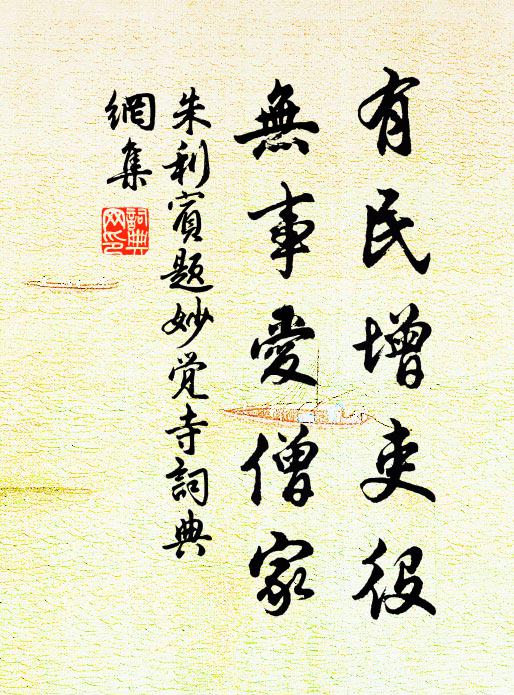 有民增吏役
無事愛僧家
朱利賓題妙觉寺詞典
網集
詞典
网印